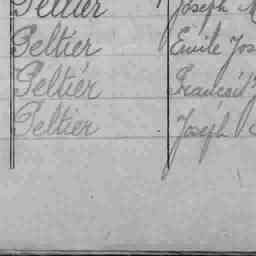 Peltier Joseph
Peltier Emile Jos
Peltier
Peltier Joseph